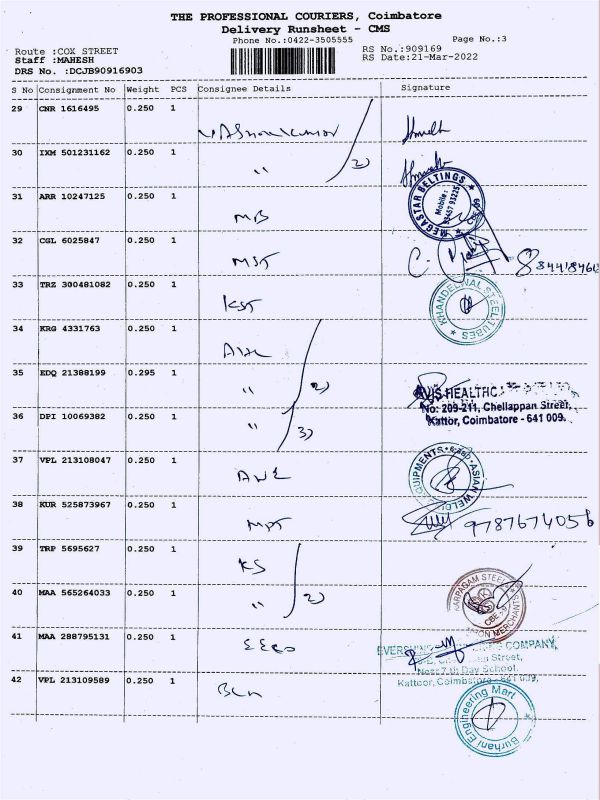 THE PROFESSIONAL COURIERS, Coimbatore
Delivery Runsheet - CMS
Phone No.:0422-3505555
Page No.:3
Route :COX STREET
RS No.:909169
Staff :MAHESH
RS Date:21-Mar-2022
DRS No. :DCJB90916903
S No Consignment No Weight PCS Consignee Details Signature
29 CNR 1616495 0.250 1
30 IXM 501231162 0.250 1 " 2)
31 ARR 10247125 0.250 1 MB
MEGASTAR BELTINGS
Mobile :
32 CGL 6025847 0.250 1 MST
33 TRZ 300481082 0.250 1 KST
KHANDELWAL STEEL TUBES
34 KRG 4331763 0.250 1
35 EDQ 21388199 0.295 1 " 2)
No: 209-211, Chellappan Street,
Kattor, Coimbatore - 641 009.
36 DPI 10069382 0.250 1 " 3)
37 VPL 213108047 0.250 1 AWE
ASIAN WELDING EQUIPMENTS
38 KUR 525873967 0.250 1 MPT
39 TRP 5695627 0.250 1 KS
40 MAA 565264033 0.250 1 " 2)
KARPAGAM STEEL
41 MAA 288795131 0.250 1
COMPANY,
Street,
Day School,
Kattoor, Coimbatore - 641 009.
42 VPL 213109589 0.250 1
Burhani Engineering Mart